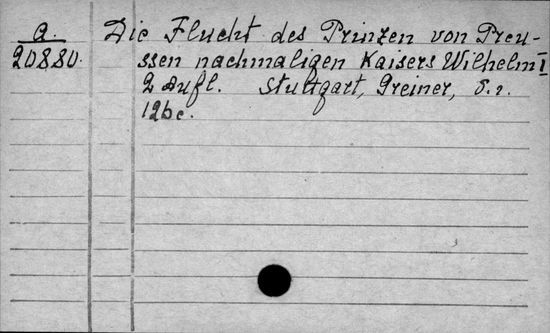 a. Die Flucht des Prinzen von Preu-
20880. ssen nachmaligen Kaisers Wilhelm I
2 Aufl. Stuttgart, Greiner, s. a.
126 c.